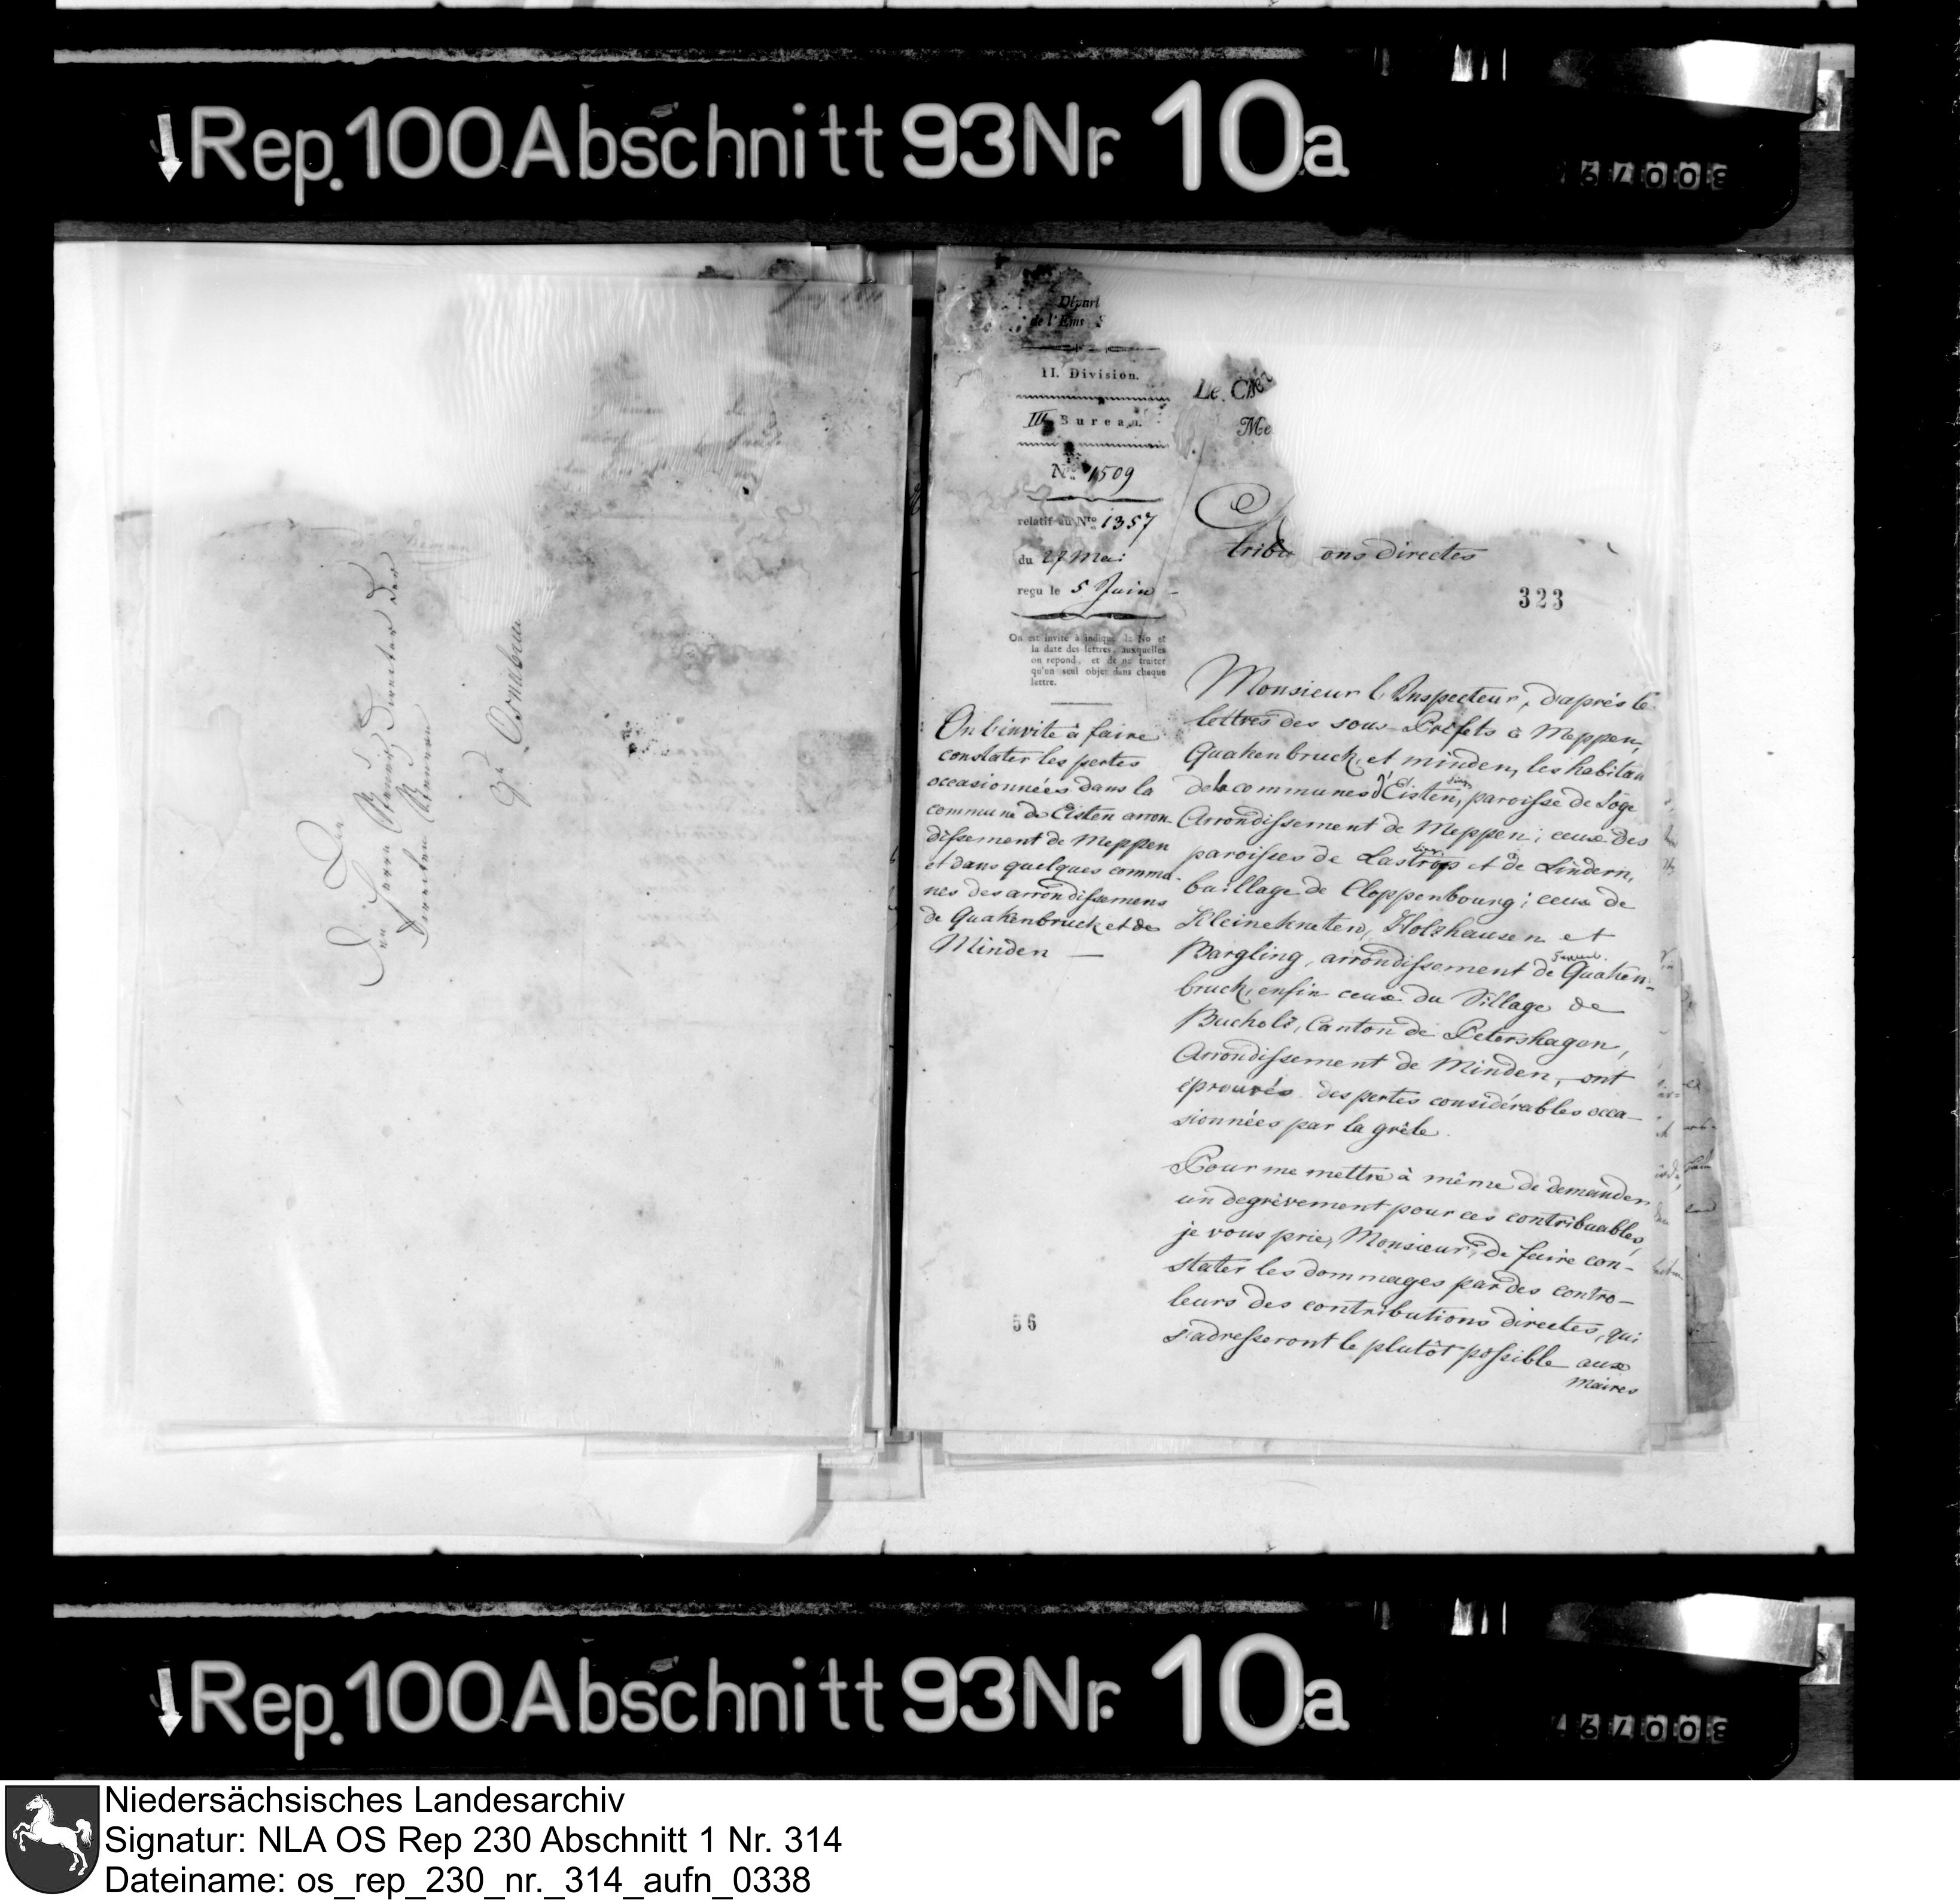 Rep. 100 Abschnitt 93 Nr. 10a
Den
Herrn Steuer Director der
Directen Steuern
Zu Osnabruck
Départ
de l'Ems
II. Division.
III Bureau.
Nº 1509
relatif au Nro 1357
du 27 Mai
reçu le 5 Juin
On est invité à indiquer le No et
la date des lettres, auxquelles
on repond, et de ne traiter
qu'un seul objet dans chaque
lettre.
On l'invite à faire
constater les pertes
occasionnées dans la
commune de Eisten arron-
dissement de Meppen
et dans quelques commu-
nes des arrondissemens
de Quakenbruck et de
Minden —
56
Le Che
Me
tribu ons directes
323
Monsieur l'Inspecteur, d'après le
lettres des sous-Préfets à Meppen,
Quakenbruck, et minden, les habitan
de la communes d'Eisten, paroisse de Söge
Arrondissement de Meppen; ceux des
paroisses de Lastrop et de Lindern,
baillage de Cloppenbourg; ceux de
Kleinekneten, Holzhausen et
Bargling, arrondissement de Quaken-
bruck, enfin ceux du Village de
Bucholz, Canton de Petershagen,
Arrondissement de Minden, ont
éprouvés des pertes considérables occa-
sionnées par la grêle.
Pour me mettre à même de demander
un degrèvement pour ces contribuables,
je vous prie, Monsieur, de faire con-
stater les dommages par des contro-
leurs des contributions directes, qui
s'adresseront le plutôt possible aux
Maires
Rep. 100 Abschnitt 93 Nr. 10a
Niedersächsisches Landesarchiv
Signatur: NLA OS Rep 230 Abschnitt 1 Nr. 314
Dateiname: os_rep_230_nr._314_aufn_0338